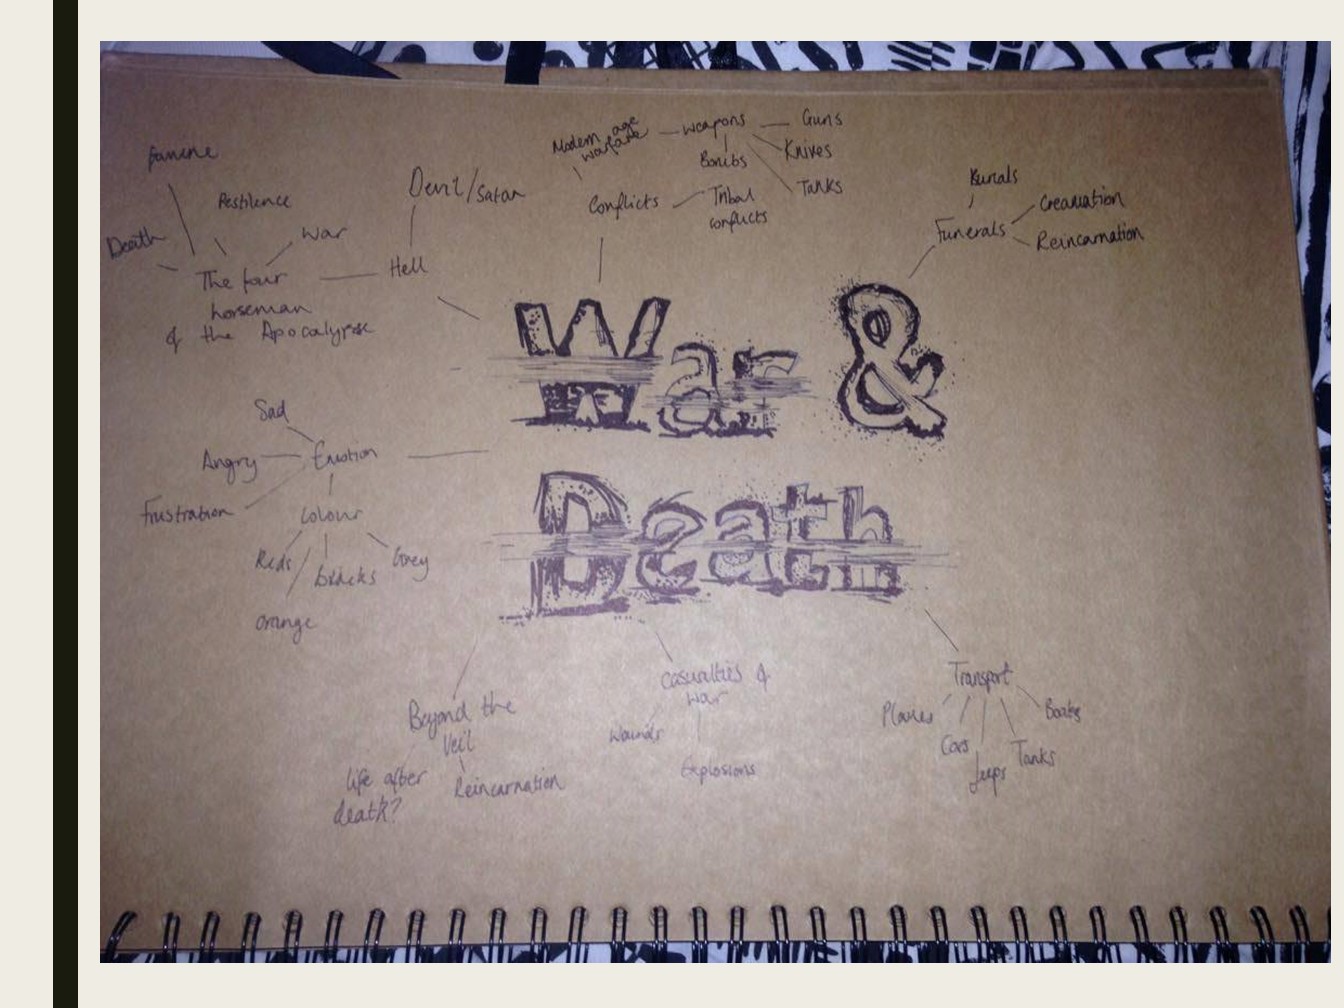 famine
Pestilence
Death
War
The four
horseman
of the Apocalypse
Devil/Satan
Hell
Modern age
warfare
weapons
Guns
Knives
Bombs
Tanks
Conflicts
Tribal
conflicts
Burials
Creamation
Funerals
Reincarnation
War &
Death
Sad
Angry
Emotion
Frustration
Colour
Reds
blacks
Grey
orange
Beyond the
Veil
life after
death?
Reincarnation
Casualties of
war
Wounds
Explosions
Transport
Planes
Cars
Jeeps
Tanks
Boats